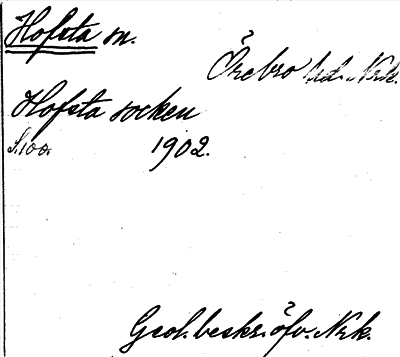 Hofsta sn.
Örebro hd. Nrk.
Hofsta socken
S.100. 1902.
Geol. beskr. öfv. Nrk.